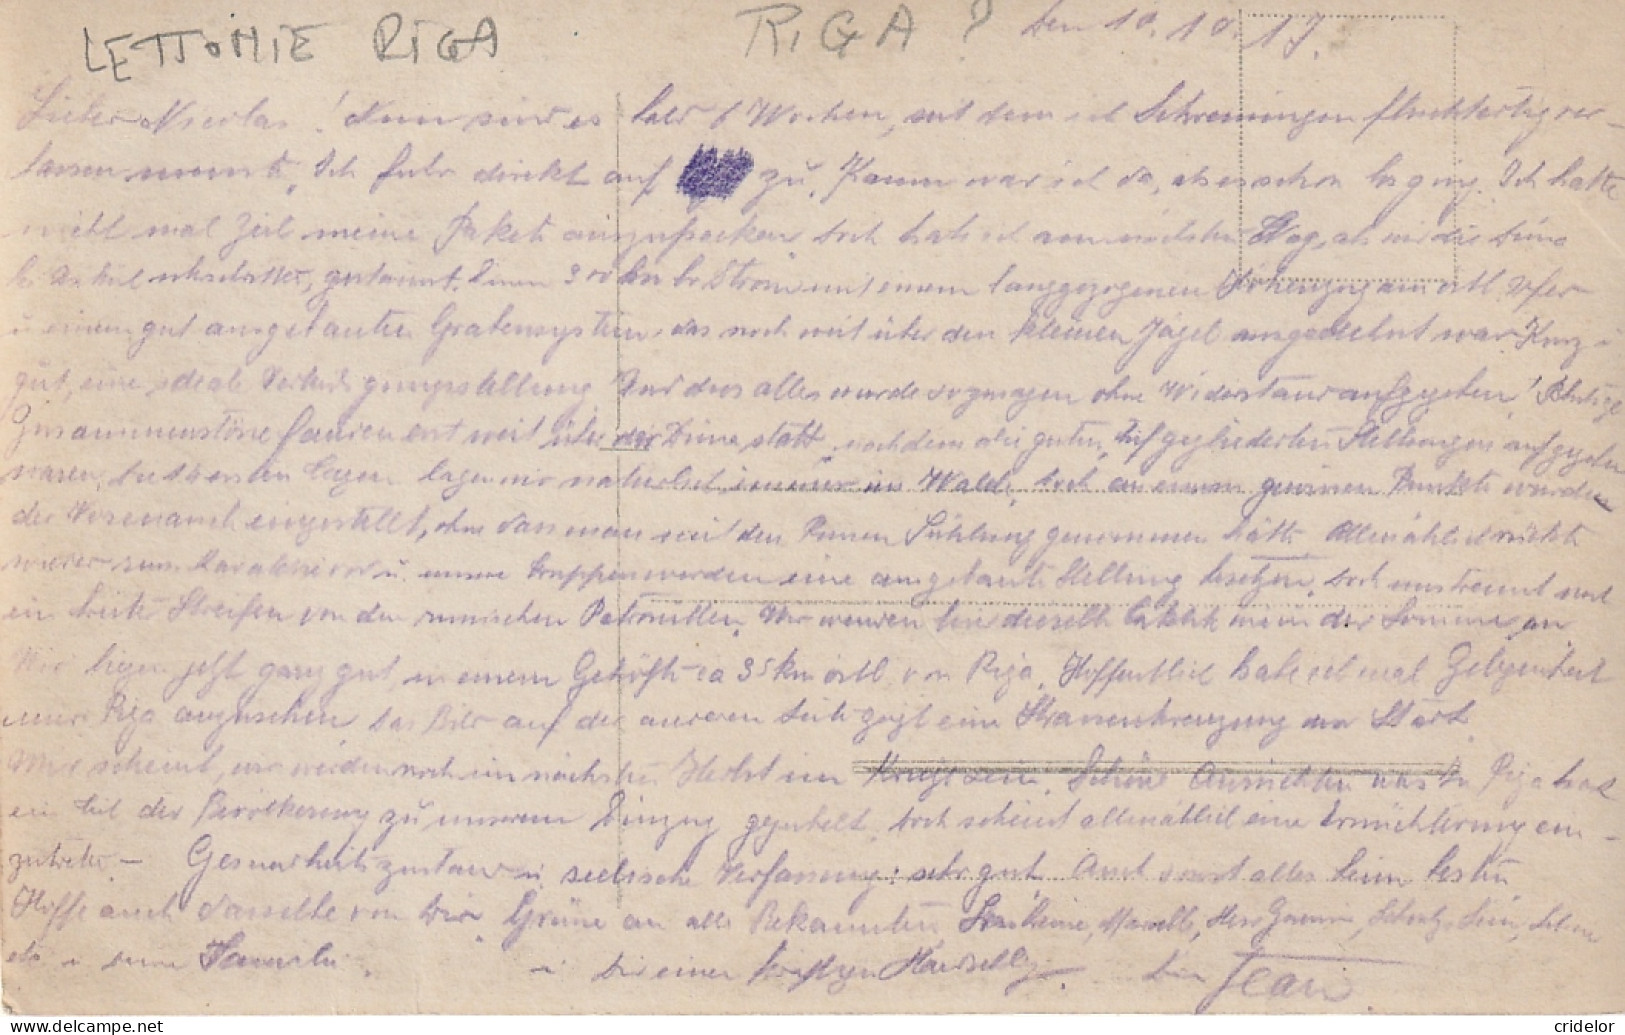 LETTONIE RIGA
RIGA ? den 10. 10. 17.
Lieber Nicolas! Nun sind es bald 6 Wochen, seit dem ich fluchtartig ver-
lassen musste. Ich fuhr direkt auf zu. Kaum war ich da, als es schon los ging. Ich hatte
nicht mal Zeit meine Pakete auszupacken doch hab ich am nächsten Tag, als wir die Düna
bei überschritten, gestaunt. Einen 300 m br. Strom mit einem langgezogenen Höhenzug am östl. Ufer
u einem gut ausgebauten Grabensystem, das noch weit über den kleinen Jägel ausgedehnt war. Kurz
gut, eine ideale Verteidigungsstellung. Und das alles wurde sozusagen ohne Widerstand aufgegeben! Blutige
Zusammenstösse fanden erst weit über der Düna statt, nachdem die guten, tiefgegliederten Stellungen aufgegeben
waren. Die ersten Tagen lagen wir natürlich immer im Walde, doch an einem gewissen Punkte wurde
der Vormarsch eingestellt, ohne dass man mit den Russen Fühlung genommen hätte. Allmählich rückte
wieder russ. Kavallerie vor u. unsere Truppen werden eine ausgebaute Stellung besetzen, doch uns trennt noch
ein breiter Streifen von den russischen Patrouillen. Wir wenden hier dieselbe Taktik wie an der Somme an
Wir liegen jetzt ganz gut in einem Gehöft ca 35 km östl. von Riga. Hoffentlich habe ich mal Gelegenheit
mir Riga anzusehen, das Bild auf der anderen Seite zeigt eine Strassenkreuzung der Stadt.
Mir scheint, wir werden noch im nächsten Herbst im Krieg sein. Schöne Aussichten was? In Riga hat
ein Teil der Bevölkerung zu unserem Einzug gejubelt, doch scheint allmählich eine Ernüchterung ein-
zutreten. – Gesundheitszustand u. seelische Verfassung: sehr gut. Auch sonst alles beim besten
Hoffe auch dasselbe von Dir. Grüsse an alle Bekannten,
etc u deine Familie. u Dir einen kräftigen Dein Jean
cridelor
www.delcampe.net